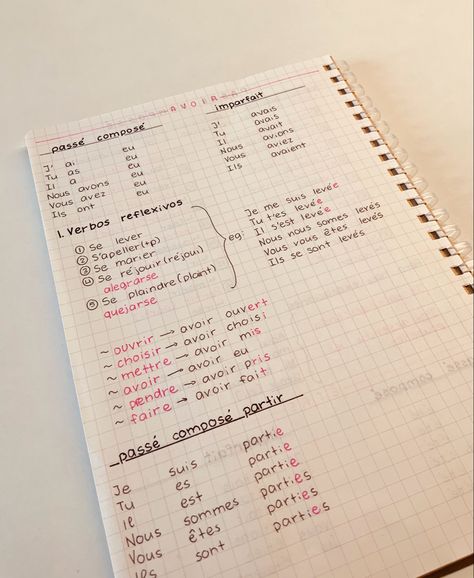 AVOIR
passé composé
J' ai eu
Tu as eu
Il a eu
Nous avons eu
Vous avez eu
Ils ont eu
imparfait
J' avais
Tu avais
Il avait
Nous avions
Vous aviez
Ils avaient
1. Verbos reflexivos
① Se lever
② S'apeller (+p)
③ Se marier
④ Se réjouir (réjoui)
alegrarse
⑤ Se plaindre (plaint)
quejarse
eg:
Je me suis levée
Tu t'es levée
Il s'est levée
Nous nous somes levés
Vous vous êtes levés
Ils se sont levés
~ ouvrir → avoir ouvert
~ choisir → avoir choisi
~ mettre → avoir mis
~ avoir → avoir eu
~ prendre → avoir pris
~ faire → avoir fait
passé composé partir
Je suis partie
Tu es partie
Il est partie
Nous sommes parties
Vous êtes parties
Ils sont parties